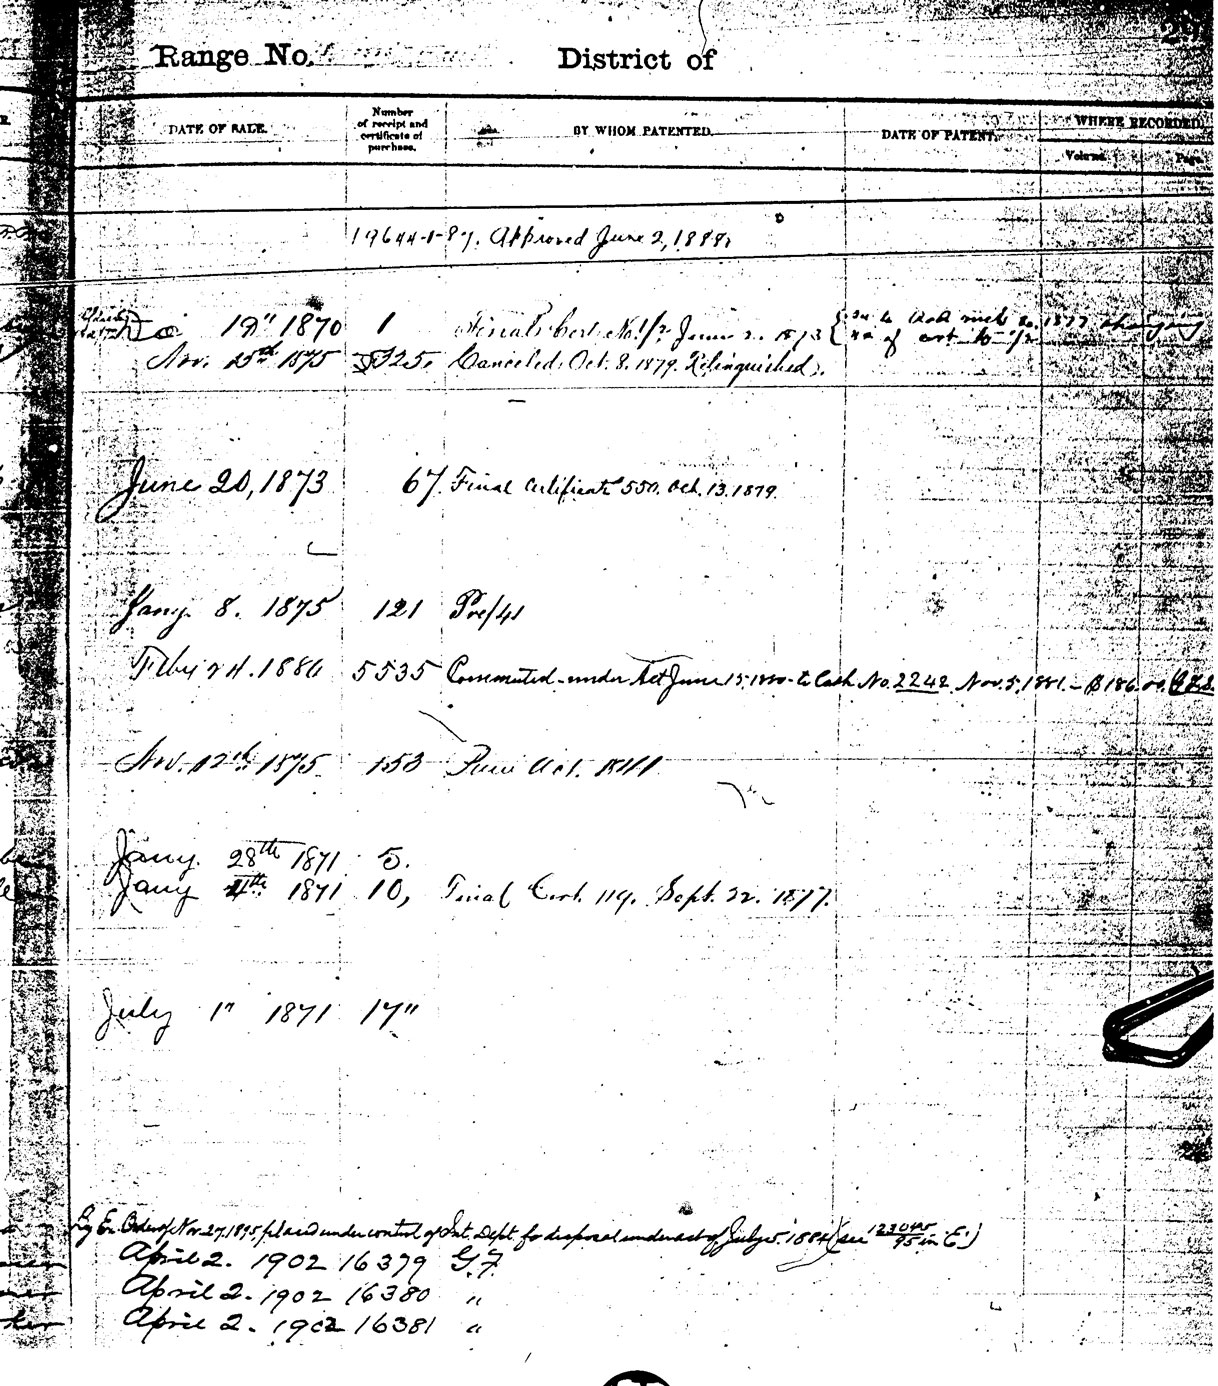 Range No. District of
DATE OF SALE. Number of receipt and certificate of purchase. BY WHOM PATENTED. DATE OF PATENT. WHERE RECORDED.
Volume. Page.
19644-1-87. Approved June 2, 1888.
19" 1870 1 Final Cert. No. 1/2 June 2. 1873
Nov. 15th 1875 Canceled. Oct. 8. 1879. Relinquished.
June 20, 1873 67. Final Certificate 550. Oct. 13. 1879.
Jany. 8. 1875 121 Pre/41
Feby 24. 1880 5535 Commuted under Act June 15, 1880 to Cash No. 2242 Nov. 5, 1881. - $186.00.
Nov. 12th 1875 153 Act. 1841
Jany. 28th 1871 5.
Jany 1871 10, Final Cert. 119. Sept. 22. 1877.
July 1" 1871 17"
By Ex. Order of Nov. 27, 1895, placed under control of Int. Dept. for disposal under act of July 5, 1884 (see 95 in "E")
April 2. 1902 16379 G.F.
April 2. 1902 16380 "
April 2. 1902 16381 "